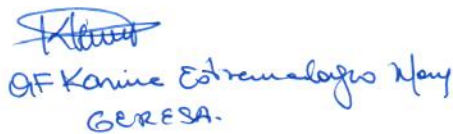 QF Karine Estremadoyro Mory
GERESA.